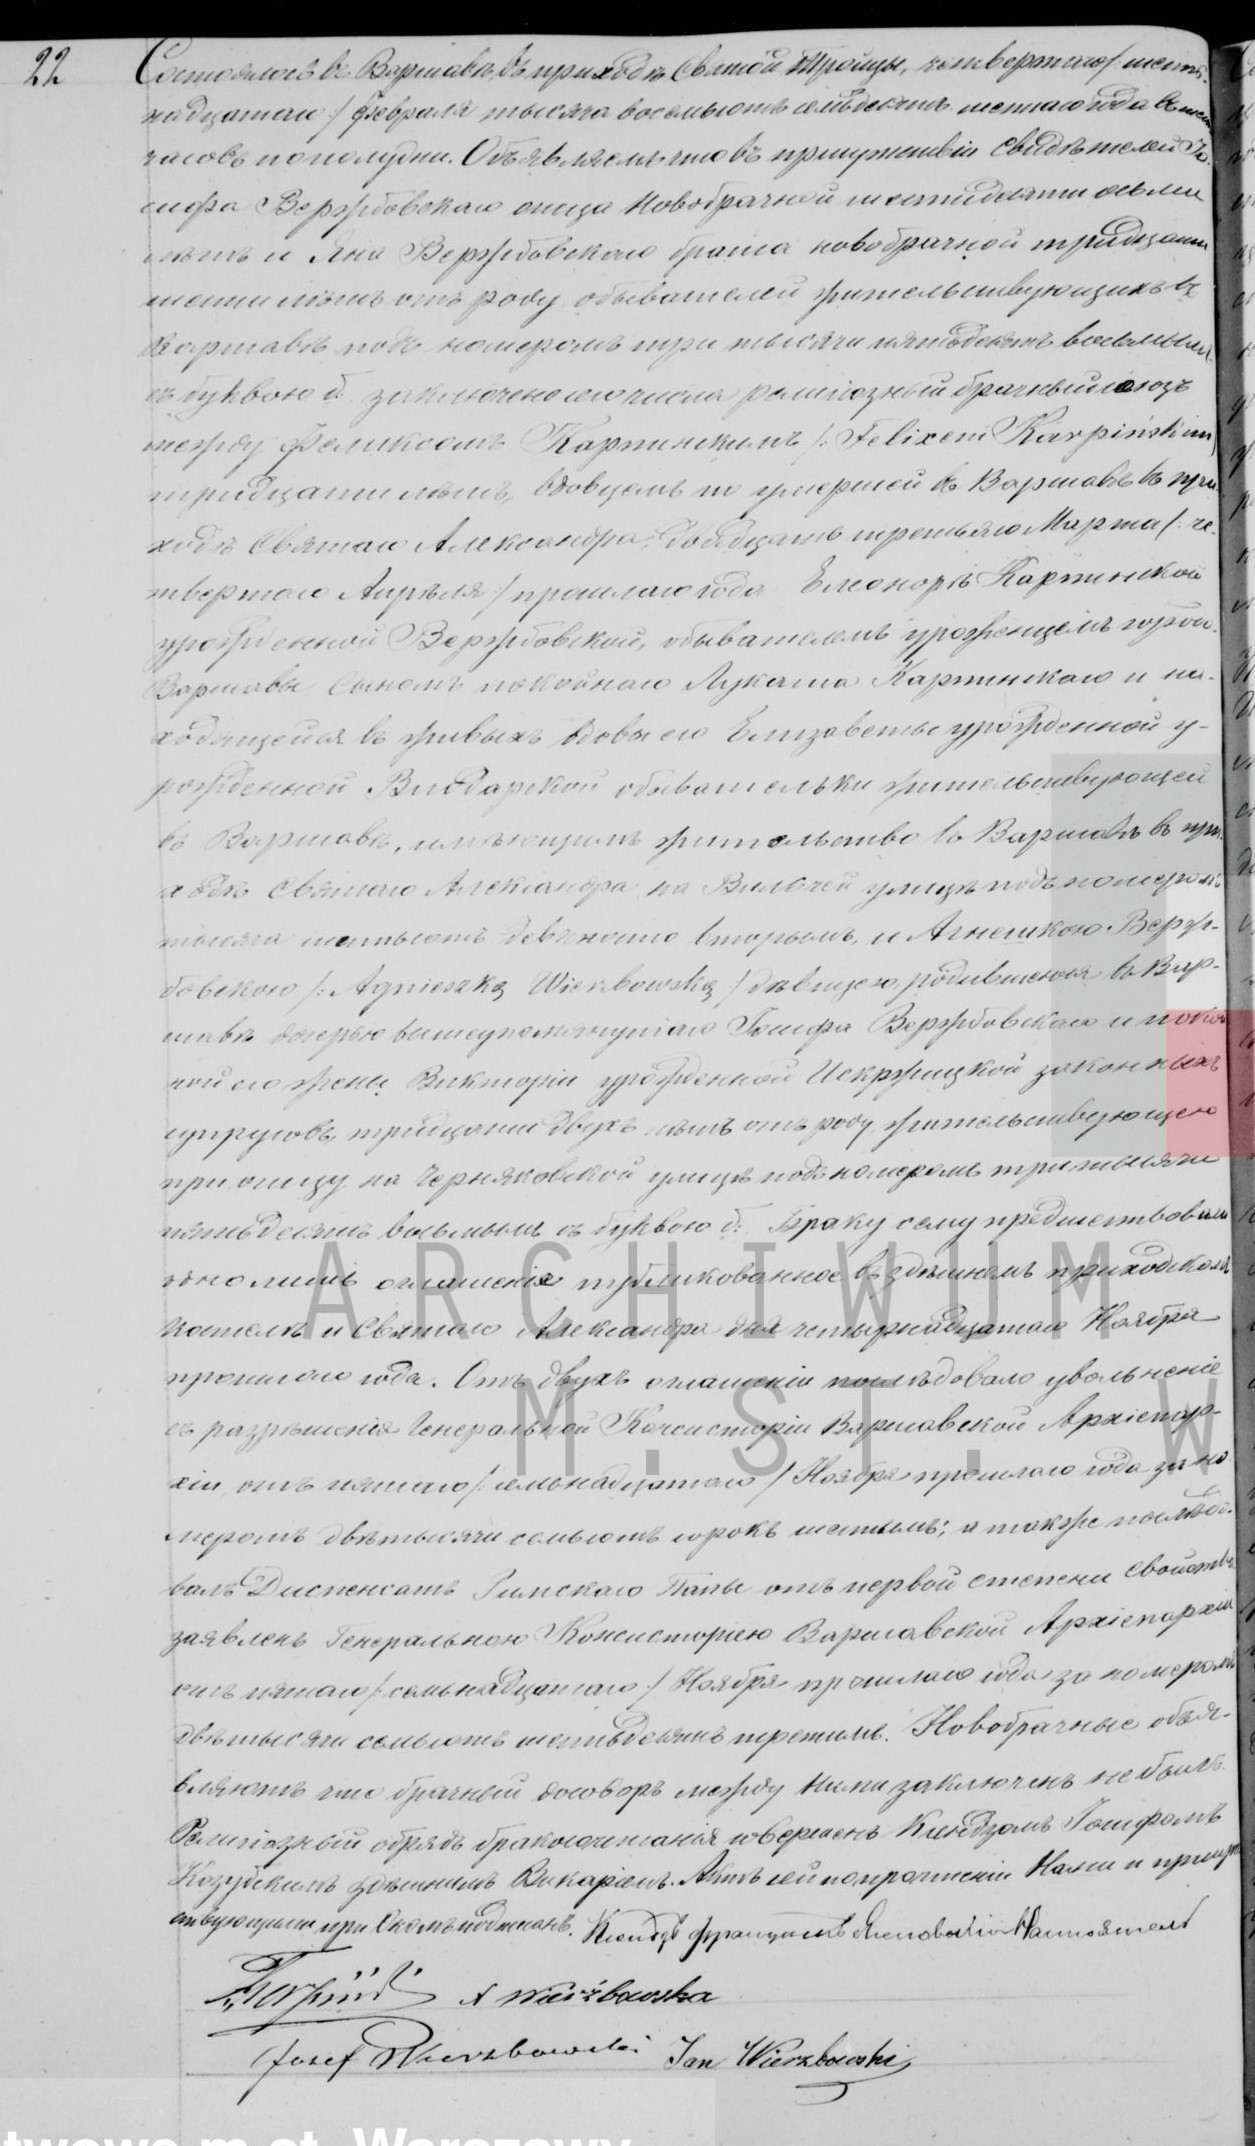 22
Состоялось въ Варшавѣ, въ приходѣ Святой Троицы, четвертаго /: шест-
надцатаго :/ Февраля тысяча восемьсотъ семьдесятъ шестаго года въ
часовъ пополудни. Объявляемъ что въ присутствіи свидѣтелей Іо-
сифа Вержбовскаго отца новобрачной шестидесяти осьми
лѣтъ и Яна Вержбовскаго брата новобрачной тридцати
шести лѣтъ отъ роду, обывателей жительствующихъ въ
Варшавѣ подъ номеромъ три тысячи пятьдесятъ восьмымъ
съ буквою б. заключено сего числа религіозный брачный союзъ
между Феликсомъ Карпинскимъ /: Felixem Karpińskim
тридцати лѣтъ, вдовцемъ по умершей въ Варшавѣ въ при-
ходѣ Святаго Александра, двадцать третьяго Марта /: че-
твертаго Апрѣля :/ прошлаго года Елеонорѣ Карпинской
урожденной Вержбовской, обывателемъ уроженцемъ города
Варшавы сыномъ покойнаго Лукаша Карпинскаго и на-
ходящейся въ живыхъ вдовы его Елизаветы урожденной у-
рожденной обывательки жительствующей
въ Варшавѣ, имѣющимъ жительство въ Варшавѣ въ при-
ходѣ Святаго Александра на Вильчей улицѣ подъ номеромъ
тысяча шестьсотъ девяносто вторымъ, и Агнешкою Верж-
бовскою /: Agnieszką Wierzbowską :/ дѣвицею, родившеюся въ Вар-
шавѣ дочерью вышеупомянутаго Іосифа Вержбовскаго и покой-
ной его жены Викторіи урожденной Искржицкой законныхъ
супруговъ, тридцати двухъ лѣтъ отъ роду, жительствующею
при отцу на Черняковской улицѣ подъ номеромъ три тысячи
пятьдесятъ восьмымъ съ буквою б. Браку сему предшествовали
одно лишь оглашеніе публикованное въ здѣшнемъ приходскомъ
костелѣ и Святаго Александра дня четырнадцатаго Ноября
прошлаго года. Отъ двухъ оглашеніи послѣдовало увольненіе
съ разрѣшенія Генеральной Консисторіи Варшавской Архіепар-
хіи, отъ пятаго /: семьнадцатаго :/ Ноября прошлаго года за но-
меромъ двѣ тысячи семьсотъ сорокъ шестымъ; а также послѣдо-
валъ Диспенсатъ Римскаго Папы отъ первой степени свойства
заявленъ Генеральною Консисторіею Варшавской Архіепархіи
отъ пятаго /: семьнадцатаго :/ Ноября прошлаго года за номеромъ
двѣ тысячи семьсотъ шестьдесятъ третимъ. Новобрачные объя-
вляютъ что брачный договоръ между ними заключенъ не былъ.
Религіозный обрядъ бракосочетанія совершенъ Ксендзомъ Іосифомъ
Козубскимъ здѣшнимъ Викаріемъ. Актъ сей по прочтеніи Нами и присут-
ствующими при ономъ подписанъ. Ксендзъ Францишекъ
A Wierzbowska
Józef Wierzbowski Jan Wierzbowski
ARCHIWUM
M. ST. W
twowe m.st. Warszawy